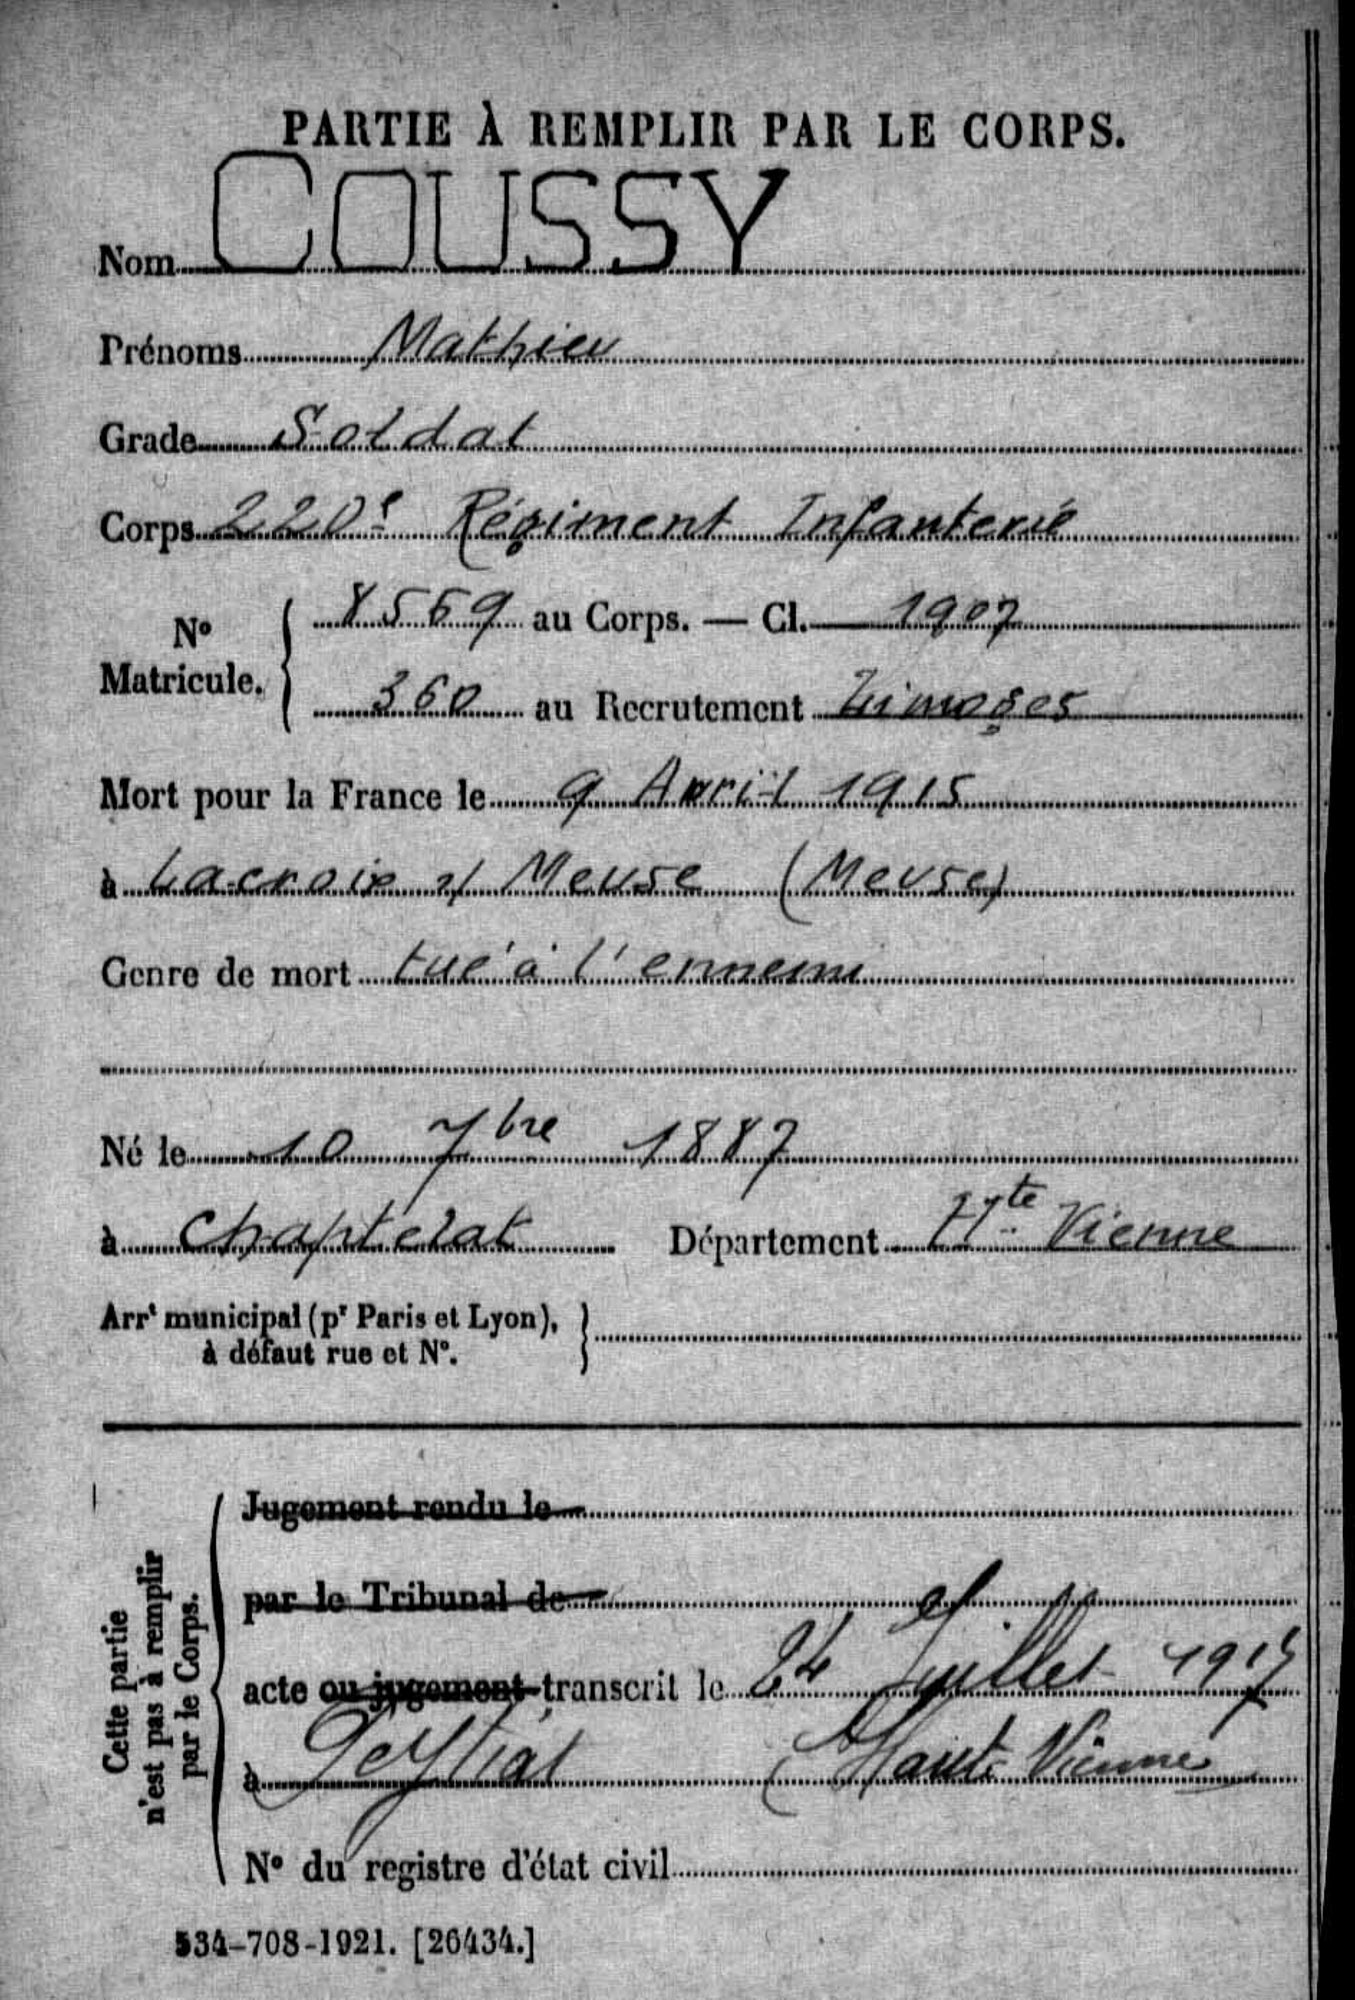 PARTIE À REMPLIR PAR LE CORPS.
Nom COUSSY
Prénoms Mathieu
Grade Soldat
Corps 220e Régiment Infanterie
No Matricule. 8569 au Corps. — Cl. 1907
360 au Recrutement Limoges
Mort pour la France le 9 Avril 1915
à Lacroix s/ Meuse (Meuse)
Genre de mort tué à l'ennemi
Né le 10 7bre 1887
à Chaptelat Département Hte Vienne
Arrt municipal (pr Paris et Lyon),
à défaut rue et No.
Cette partie
n'est pas à remplir
par le Corps.
Jugement rendu le
par le Tribunal de
acte ou jugement transcrit le 24 Juillet 1915
à Feytiat (Haute Vienne
No du registre d'état civil
534-708-1921. [26434.]